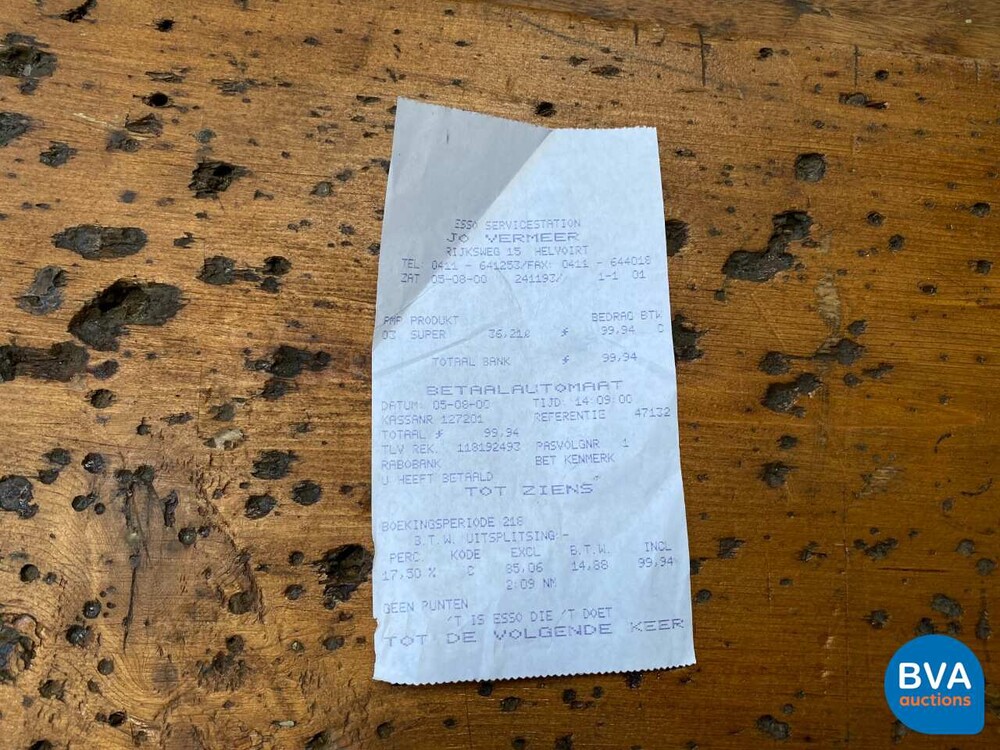 ESSO SERVICESTATION
JO VERMEER
RIJKSWEG 15 HELVOIRT
TEL 0411 - 641253/FAX: 0411 - 644018
ZAT 05-08-00 241193/ 1-1 01
PMP PRODUKT BEDRAG BTW
03 SUPER 36,210 ƒ 99,94 C
TOTAAL BANK ƒ 99,94
BETAALAUTOMAAT
DATUM: 05-08-00 TIJD: 14:09:00
KASSANR 127201 REFERENTIE 47132
TOTAAL ƒ 99,94
TLV REK. 118192493 PASVOLGNR 1
RABOBANK BET KENMERK
U HEEFT BETAALD
TOT ZIENS
BOEKINGSPERIODE 218
B.T.W. UITSPLITSING:-
PERC. KODE EXCL B.T.W. INCL
17,50 % C 85,06 14,88 99,94
2:09 NM
GEEN PUNTEN
'T IS ESSO DIE 'T DOET
TOT DE VOLGENDE KEER
BVA
auctions